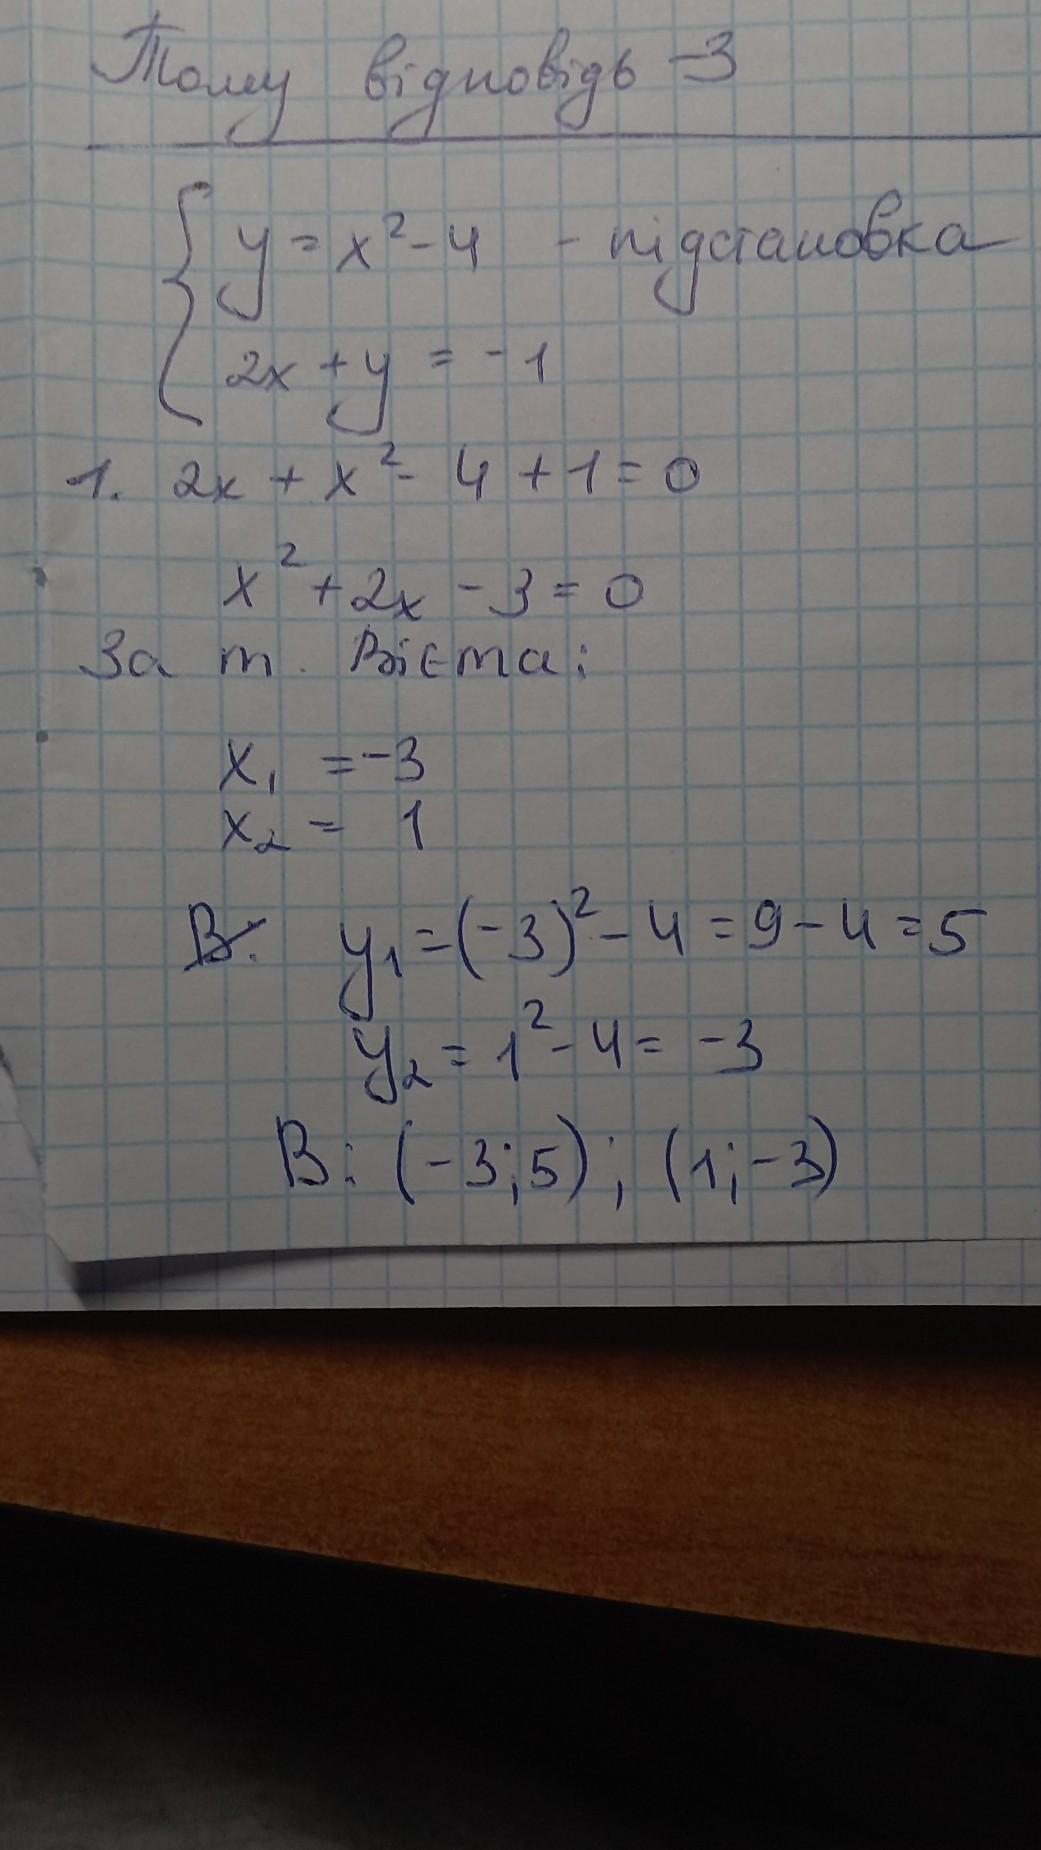 Тому відповідь -3
y = x² - 4 - підстановка
2x + y = -1
1. 2x + x² - 4 + 1 = 0
x² + 2x - 3 = 0
За т. Вієта:
x₁ = -3
x₂ = 1
В: y₁ = (-3)² - 4 = 9 - 4 = 5
y₂ = 1² - 4 = -3
В: (-3; 5); (1; -3)